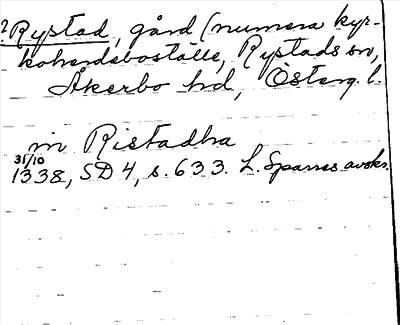 ?Rystad, gård (numera kyr-
koherdeboställe, Rystads sn,
Åkerbo hd, Österg. l.
in Ristadha
31/10
1338, SD 4, s. 633. L. Sparres avskr.